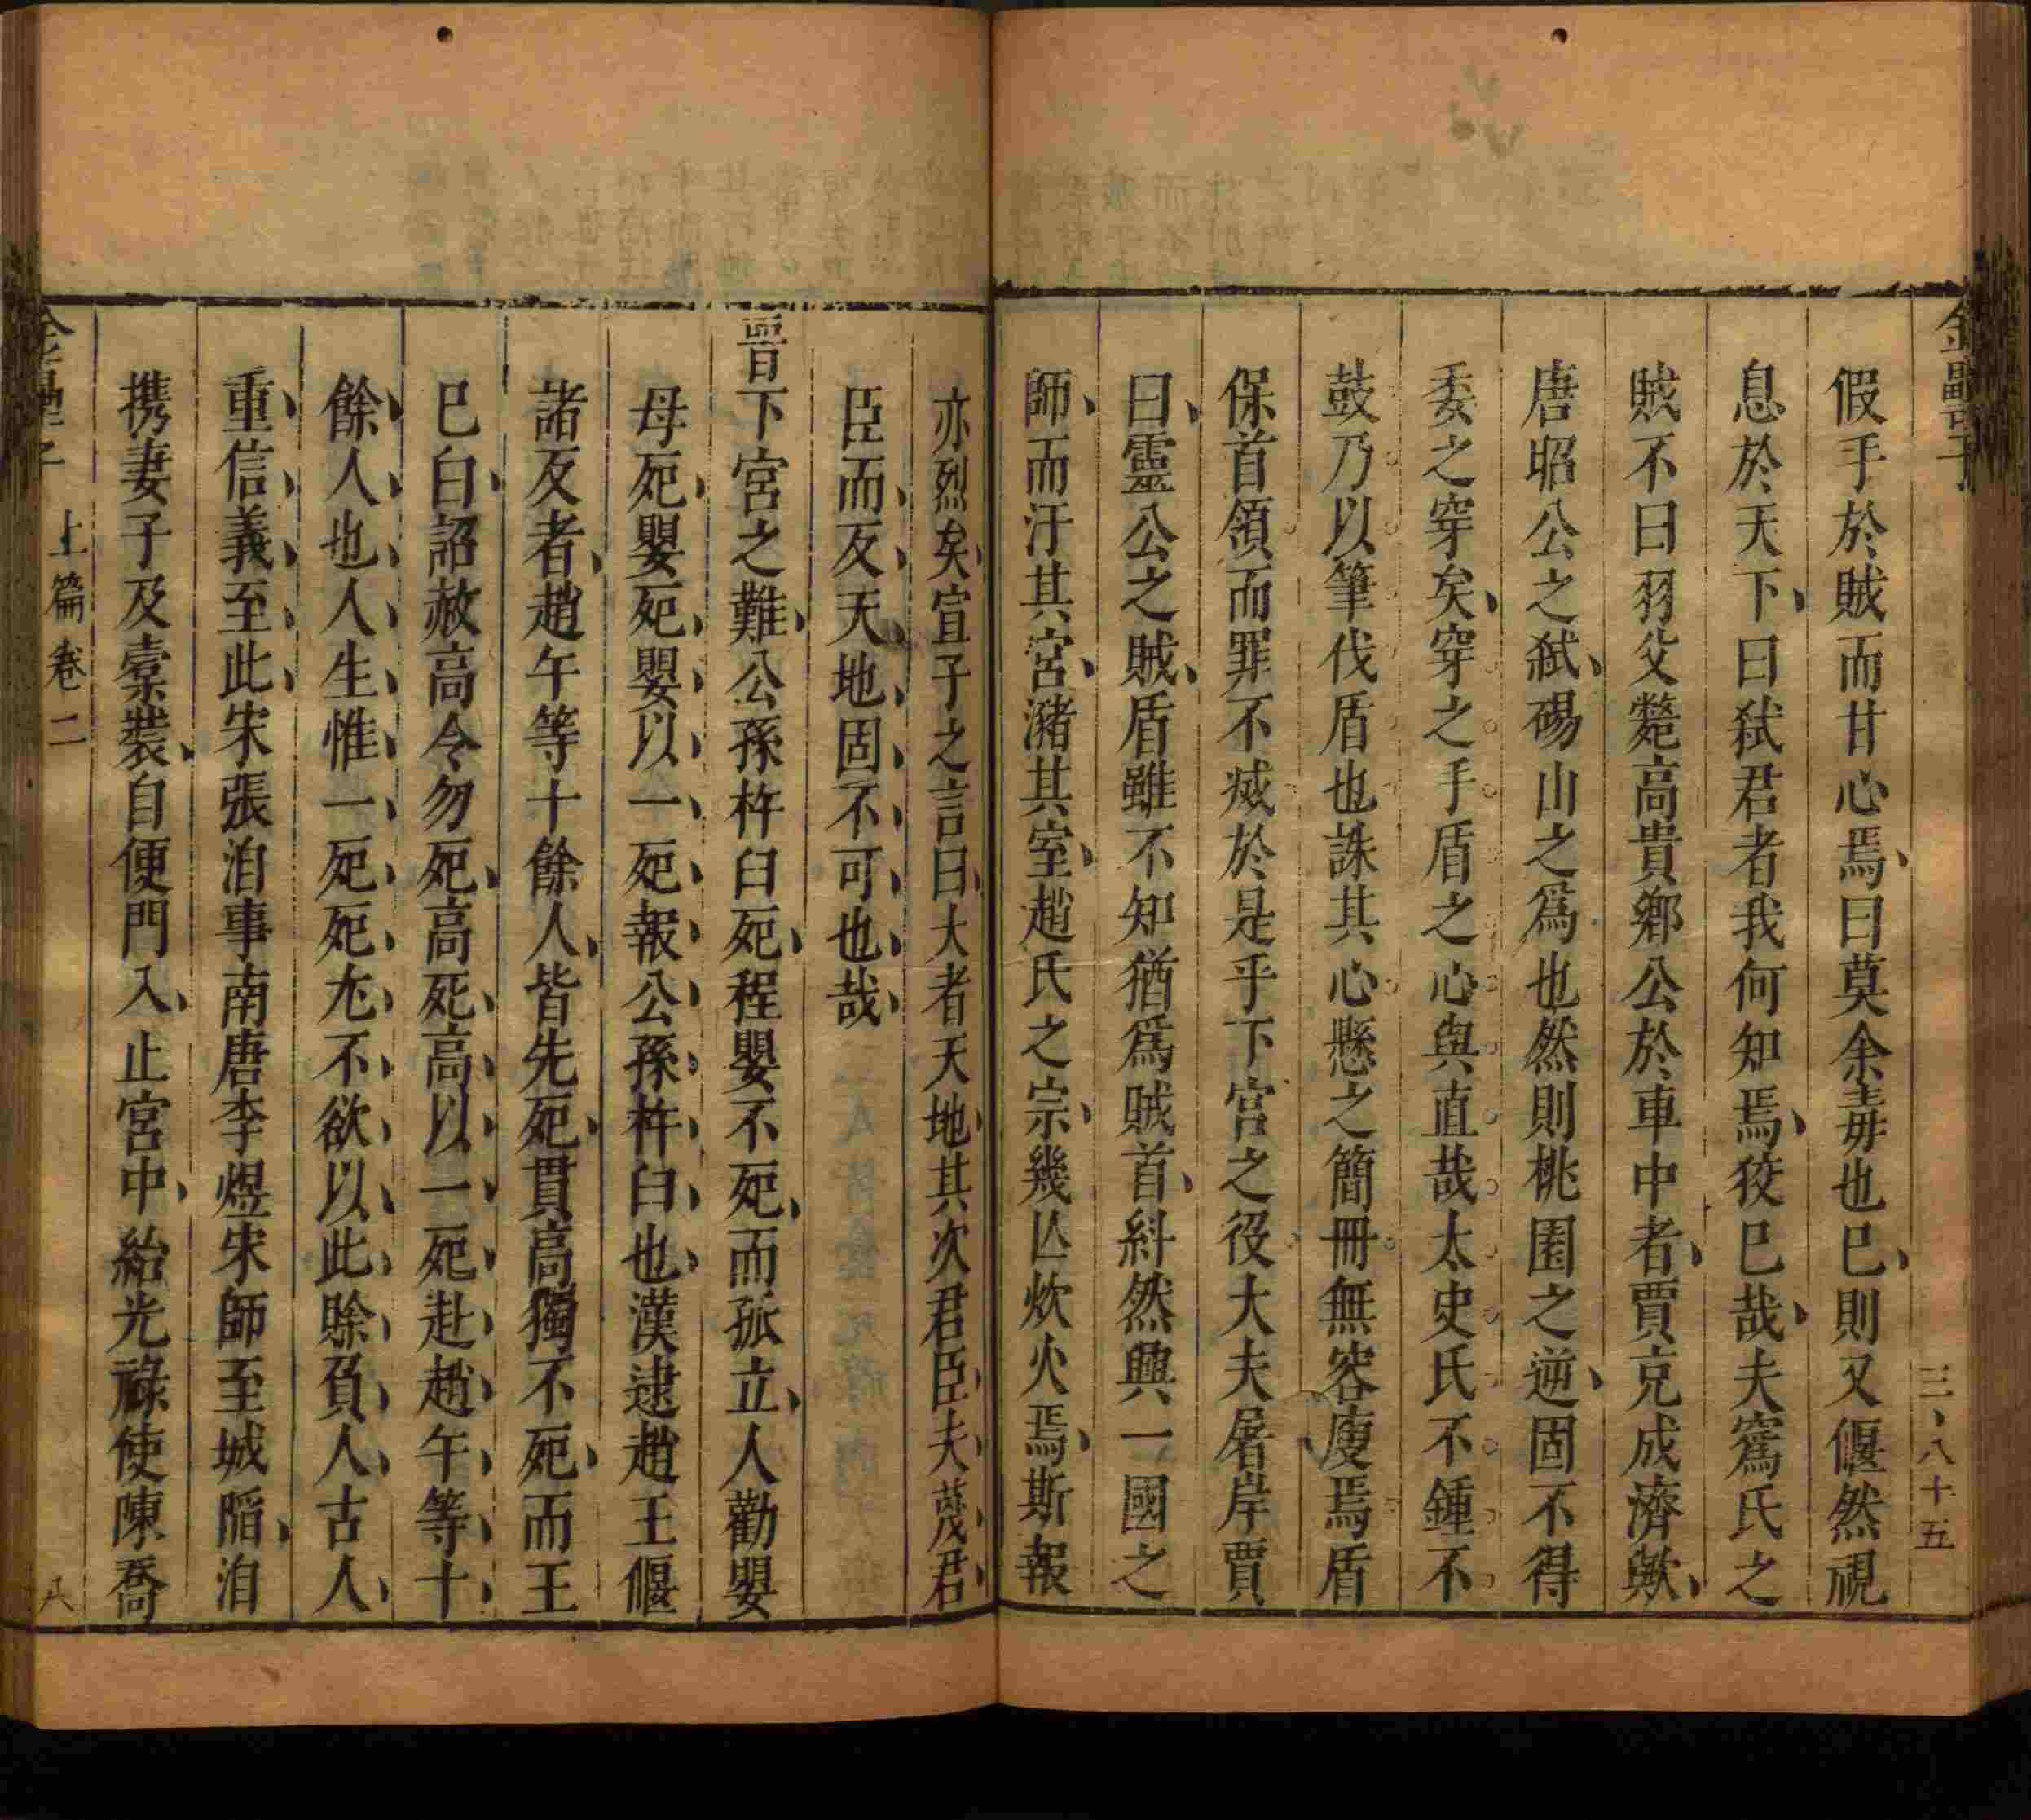 金罍子
三、八十五
假手於賊而甘心焉曰莫余毒也已則又偃然視
息於天下曰弑君者我何知焉狡已哉夫寫氏之
賊不曰羽父斃高貴鄉公於車中者賈充成濟歟
唐昭公之弑碭山之爲也然則桃園之逆固不得
委之穿矣穿之手盾之心與直哉太史氏不鍾不
鼓乃以筆伐盾也誅其心懸之簡冊無容廋焉盾
保首領而罪不烕於是乎下宮之役大夫屠岸賈
曰靈公之賊盾雖不知猶爲賊首糾然興一國之
師而汙其宮瀦其室趙氏之宗幾亾炊火焉斯報
亦烈矣宣子之言曰大者天地其次君臣夫蔑君
臣而反天地固不可也哉
晉下宮之難公孫杵臼死程嬰不死而孤立人勸嬰
母死嬰死嬰以一死報公孫杵臼也漢逮趙王偃
諸反者趙午等十餘人皆先死貫高獨不死而王
已白詔赦高令勿死高死高以一死赴趙午等十
餘人也人生惟一死死尤不欲以此賒負人古人
重信義至此宋張洎事南唐李煜宋師至城陷洎
携妻子及橐裝自便門入止宮中紿光祿使陳喬
金罍子
上篇卷二
八